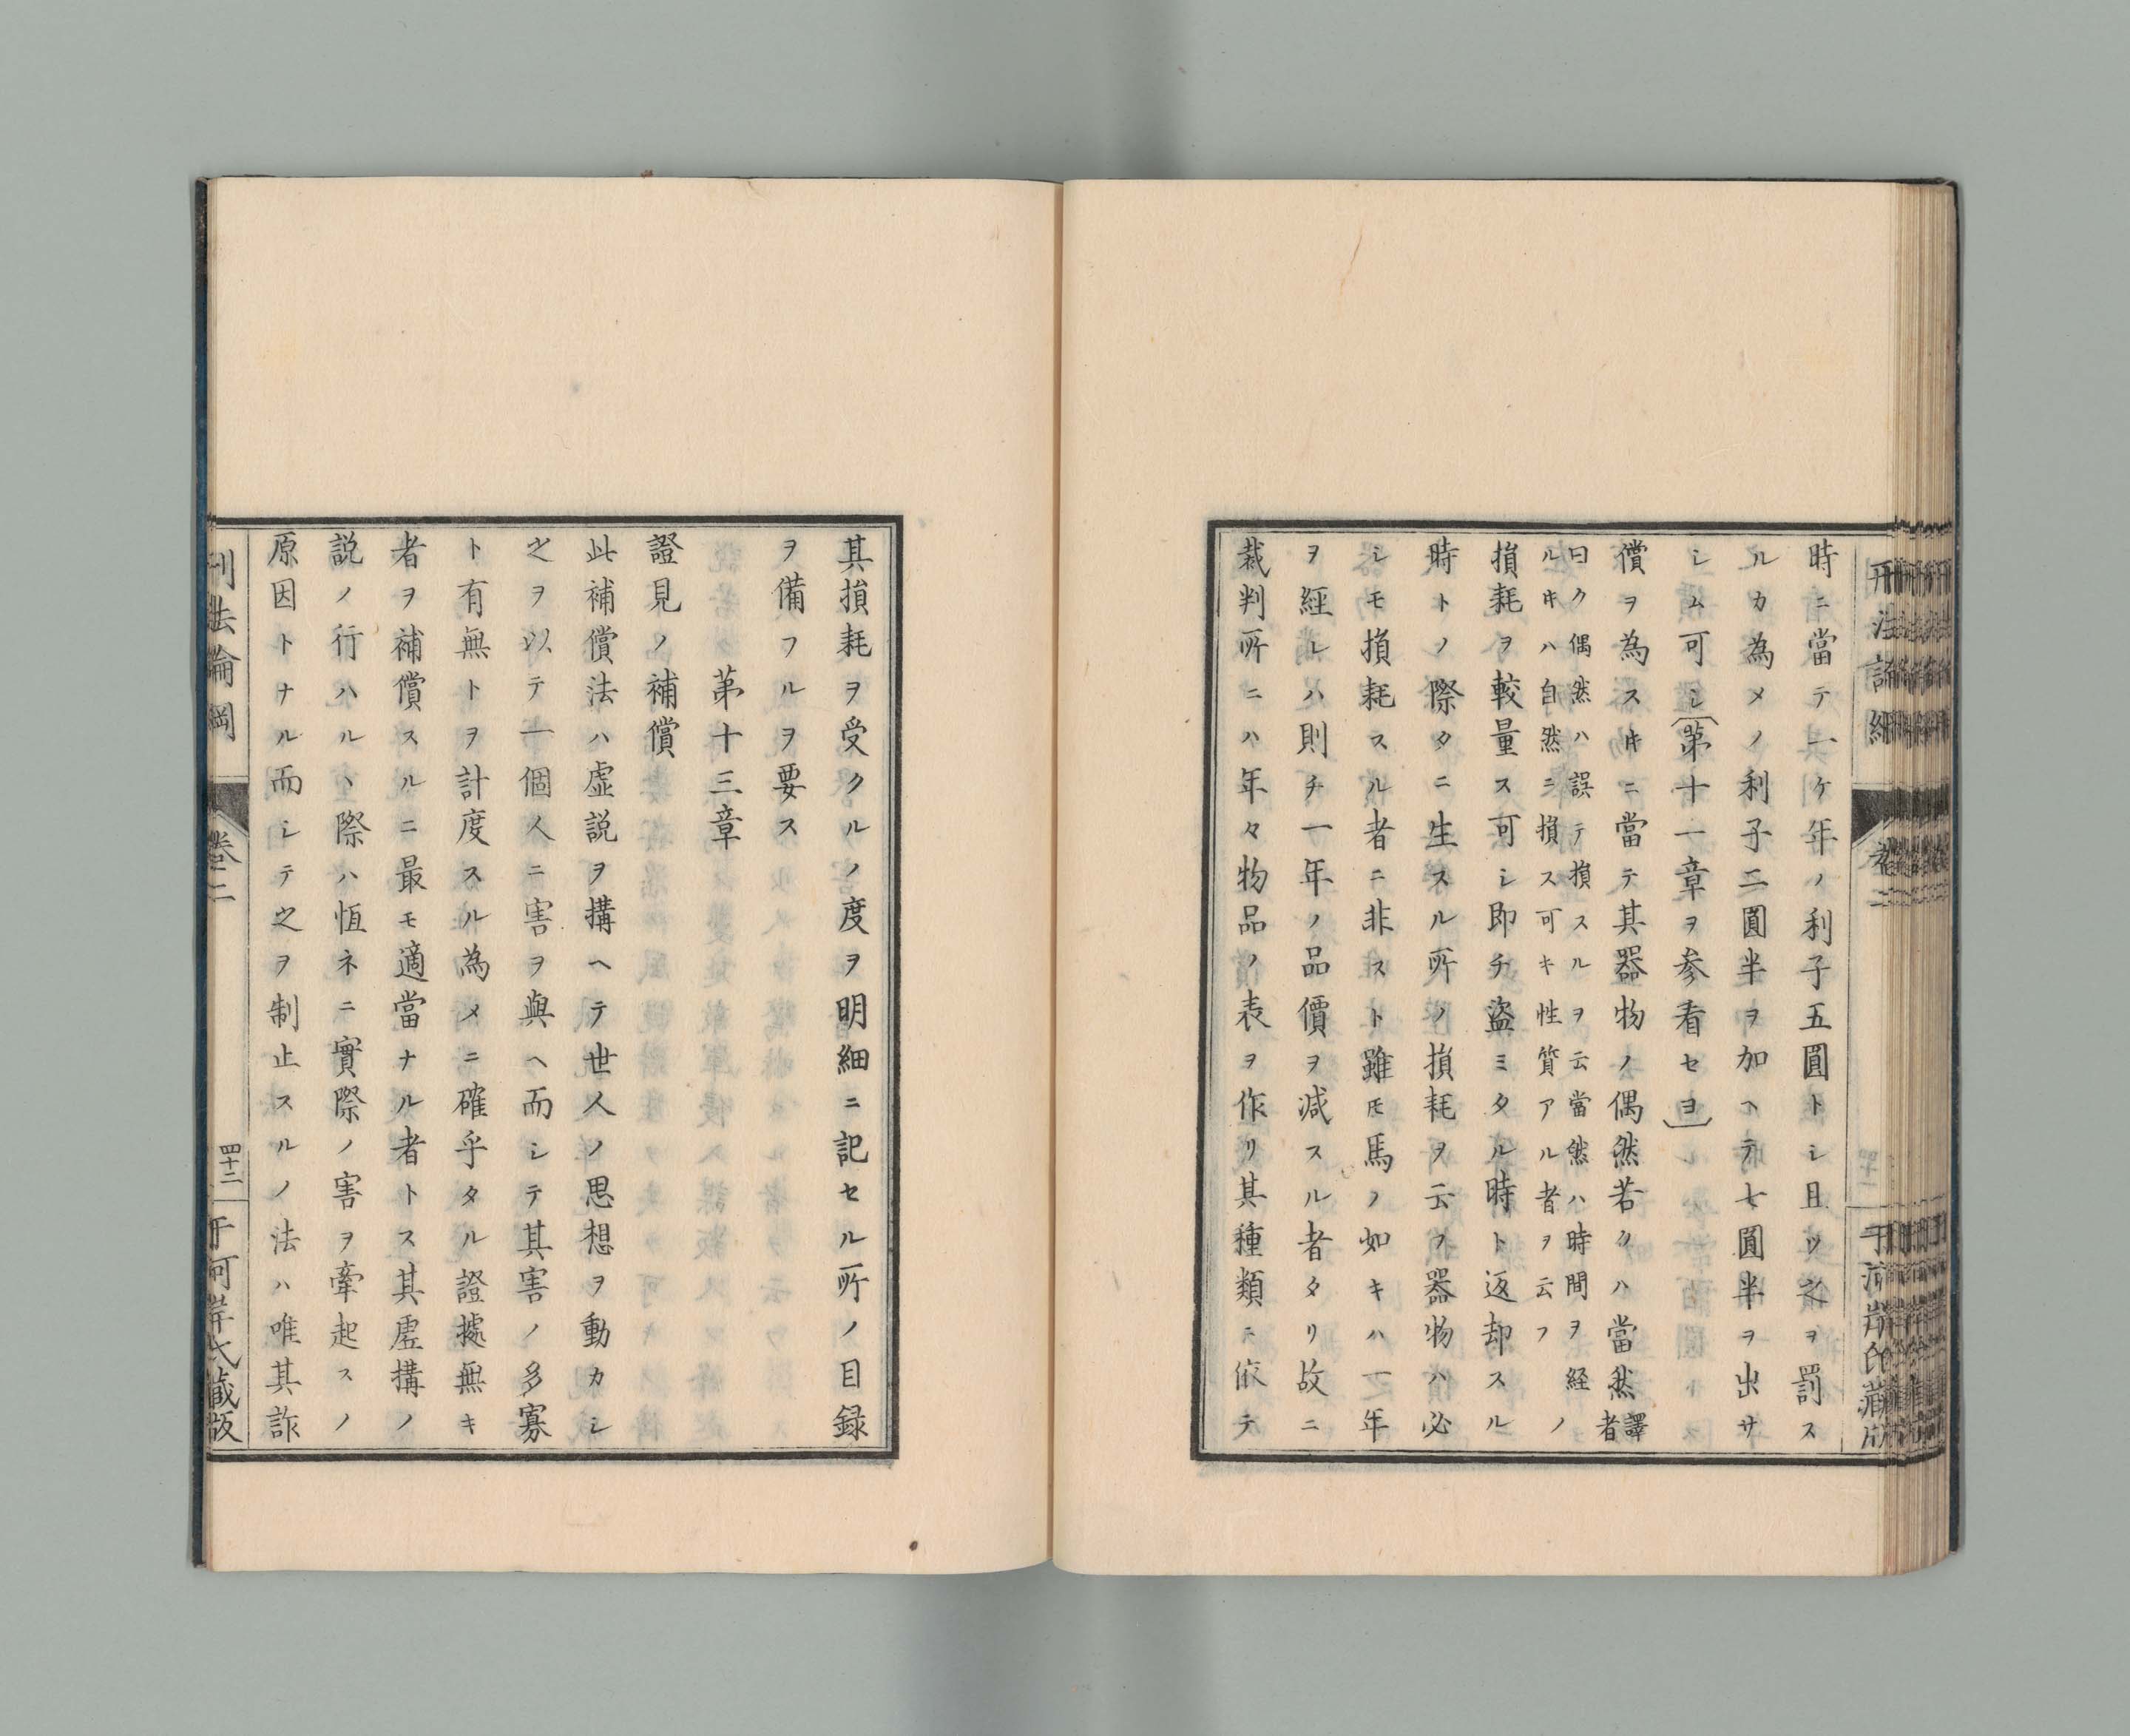 時ニ當テ一ケ年ノ利子五圓トシ且ツ之ヲ罰ス
ルカ為メノ利子二圓半ヲ加ヘテ七圓半ヲ出サ
シム可シ(第十一章ヲ参看セヨ)
償ヲ為スキニ當テ其器物ノ偶然若クハ當然譯者
曰ク偶然ハ誤テ損スルヲ云當然ハ時間ヲ経
ルキハ自然ニ損ス可キ性質アル者ヲ云フノ
損耗ヲ較量ス可シ即チ盗ミタル時ト返却スル
時トノ際タニ生スル所ノ損耗ヲ云フ器物ハ必
シモ損耗スル者ニ非スト雖𪜈馬ノ如キハ一年
ヲ經レハ則チ一年ノ品價ヲ减スル者タリ故ニ
裁判所ニハ年々物品ノ表ヲ作リ其種類ニ依テ
其損耗ヲ受クルノ度ヲ明細ニ記セル所ノ目録
ヲ備フルヲ要ス
第十三章
證見ノ補償
此補償法ハ虚説ヲ搆ヘテ世人ノ思想ヲ動カシ
之ヲ以テ一個人ニ害ヲ與ヘ而シテ其害ノ多寡
ト有無トヲ計度スル為メニ確乎タル證據無キ
者ヲ補償スルニ最モ適當ナル者トス其虚搆ノ
説ノ行ハルヽ際ハ恒ネニ實際ノ害ヲ牽起スノ
原因トナル而シテ之ヲ制止スルノ法ハ唯其詐
刑法論綱
卷二
四十二
于河岸氏藏版